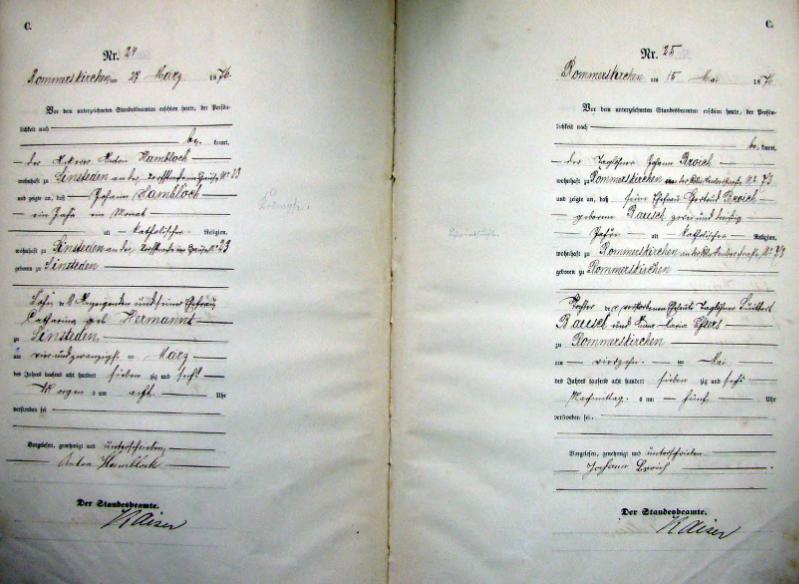 C.
Nr. 24
Rommerskirchen am 27 März 1876
Vor dem unterzeichneten Standesbeamten erschien heute, der Persön-
lichkeit nach
be kannt,
der Ackerer Anton Hambloch
wohnhaft zu Sinsteden an der Dorfstraße Haus No 23
und zeigte an, daß Johann Hambloch
ein Jahr ein Monat
alt katholischer Religion,
wohnhaft zu Sinsteden an der Dorfstraße Haus No 23
geboren zu Sinsteden
Sohn des Anzeigenden und seiner Ehefrau
Catharina geb Hermanns
zu Sinsteden
am vier und zwanzigsten März
des Jahres tausend acht hundert sieben zig und sechs
Morgens um acht Uhr
verstorben sei
Vorgelesen, genehmigt und unterschrieben
Anton Hambloch
Der Standesbeamte.
Kaiser
C.
Nr. 25
Rommerskirchen am 15 Mai 1876
Vor dem unterzeichneten Standesbeamten erschien heute, der Persön-
lichkeit nach
be kannt,
der Taglöhner Johann Broich
wohnhaft zu Rommerskirchen an der No 73
und zeigte an, daß seine Ehefrau Gertrud Broich
geborene Bausch zwei und dreißig
Jahre alt katholischer Religion,
wohnhaft zu Rommerskirchen an der No 73
geboren zu Rommerskirchen
Tochter der verstorbenen Eheleute Taglöhner
Bausch und Anna Maria
zu Rommerskirchen
am vierzehn Mai
des Jahres tausend acht hundert sieben zig und sechs
Nachmittag um fünf Uhr
verstorben sei.
Vorgelesen, genehmigt und unterschrieben
Johann Broich
Der Standesbeamte.
Kaiser